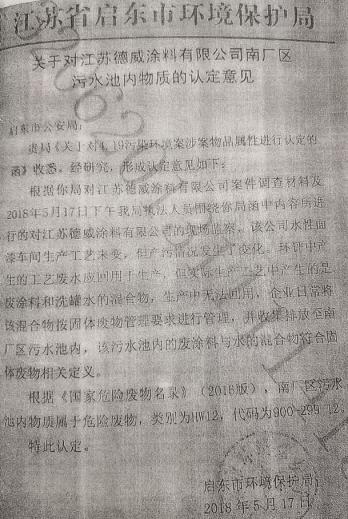 江苏省启东市环境保护局
关于对江苏德威涂料有限公司南厂区
污水池内物质的认定意见
启东市公安局：
贵局《关于对4.19污染环境案涉案物品属性进行认定的
函》收悉，经研究，形成认定意见如下：
根据你局对江苏德威涂料有限公司案件调查材料及
2018年5月17日下午我局执法人员围绕你局函中内容所进
行的对江苏德威涂料有限公司的现场监察，该公司水性面
漆车间生产工艺未变，但产污情况发生了变化，环评中产
生的工艺废水应回用于生产，但实际生产工艺中产生的是
废涂料和洗罐水的混合物，生产中无法回用，企业日常将
该混合物按固体废物管理要求进行管理，并收集排放至南
厂区污水池内，该污水池内的废涂料与水的混合物符合固
体废物相关定义。
根据《国家危险废物名录》（2016版），南厂区污水
池内物质属于危险废物，类别为HW12，代码为900-299-12。
特此认定。
启东市环境保护局
2018年5月17日